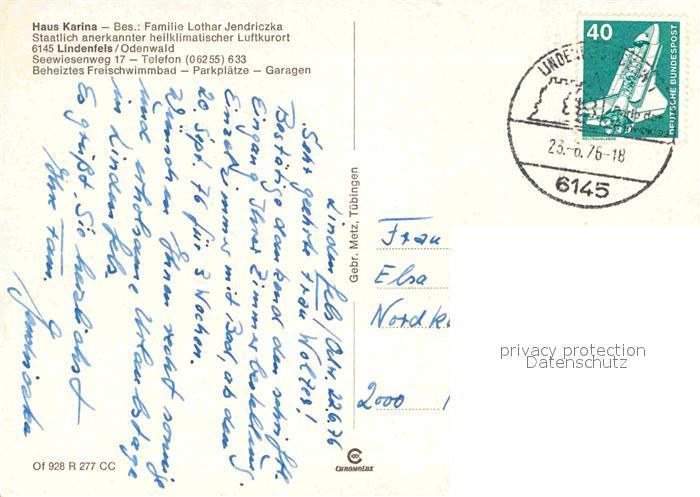 Haus Karina — Bes.: Familie Lothar Jendriczka
Staatlich anerkannter heilklimatischer Luftkurort
6145 Lindenfels/Odenwald
Seewiesenweg 17 — Telefon (06255) 633
Beheiztes Freischwimmbad — Parkplätze — Garagen
Lindenfels/Odw. 22.6.76
Sehr geehrte Frau Wolters!
Bestätige dankend den schriftl.
Eingang Ihrer Zimmerbestellung.
Einzelzimmer mit Bad, ab dem
20. Sept. 76 für 3 Wochen.
Wünsche Ihnen recht sonnige
und erholsame Urlaubstage
in Lindenfels
Es grüßt Sie herzlichst
Ihre Fam.
Jendriczka
Of 928 R 277 CC
Gebr. Metz, Tübingen
CHROMOLUX
40
DEUTSCHE BUNDESPOST
23.-6.76-18
6145
Frau
Elsa
Nordk
2000
privacy protection
Datenschutz